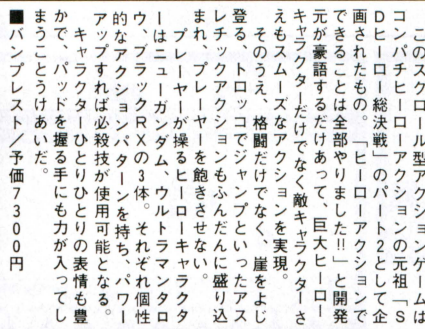 このスクロール型アクションゲームは
コンパチヒーローアクションの元祖「S
Dヒーロー総決戦」のパート2として企
画されたもの。「ヒーローアクションで
できることは全部やりました!!」と開発
元が豪語するだけあって、巨大ヒーロー
キャラクターだけでなく敵キャラクターさ
えもスムーズなアクションを実現。
そのうえ、格闘だけでなく、崖をよじ
登る、トロッコでジャンプといったアス
レチックアクションもふんだんに盛り込
まれ、プレーヤーを飽きさせない。
プレーヤーが操るヒーローキャラクタ
ーはニューガンダム、ウルトラマンタロ
ウ、ブラックRXの3体。それぞれ個性
的なアクションパターンを持ち、パワー
アップすれば必殺技が使用可能となる。
キャラクターひとりひとりの表情も豊
かで、パッドを握る手にも力が入ってし
まうことうけあいだ。
■バンプレスト／予価7300円